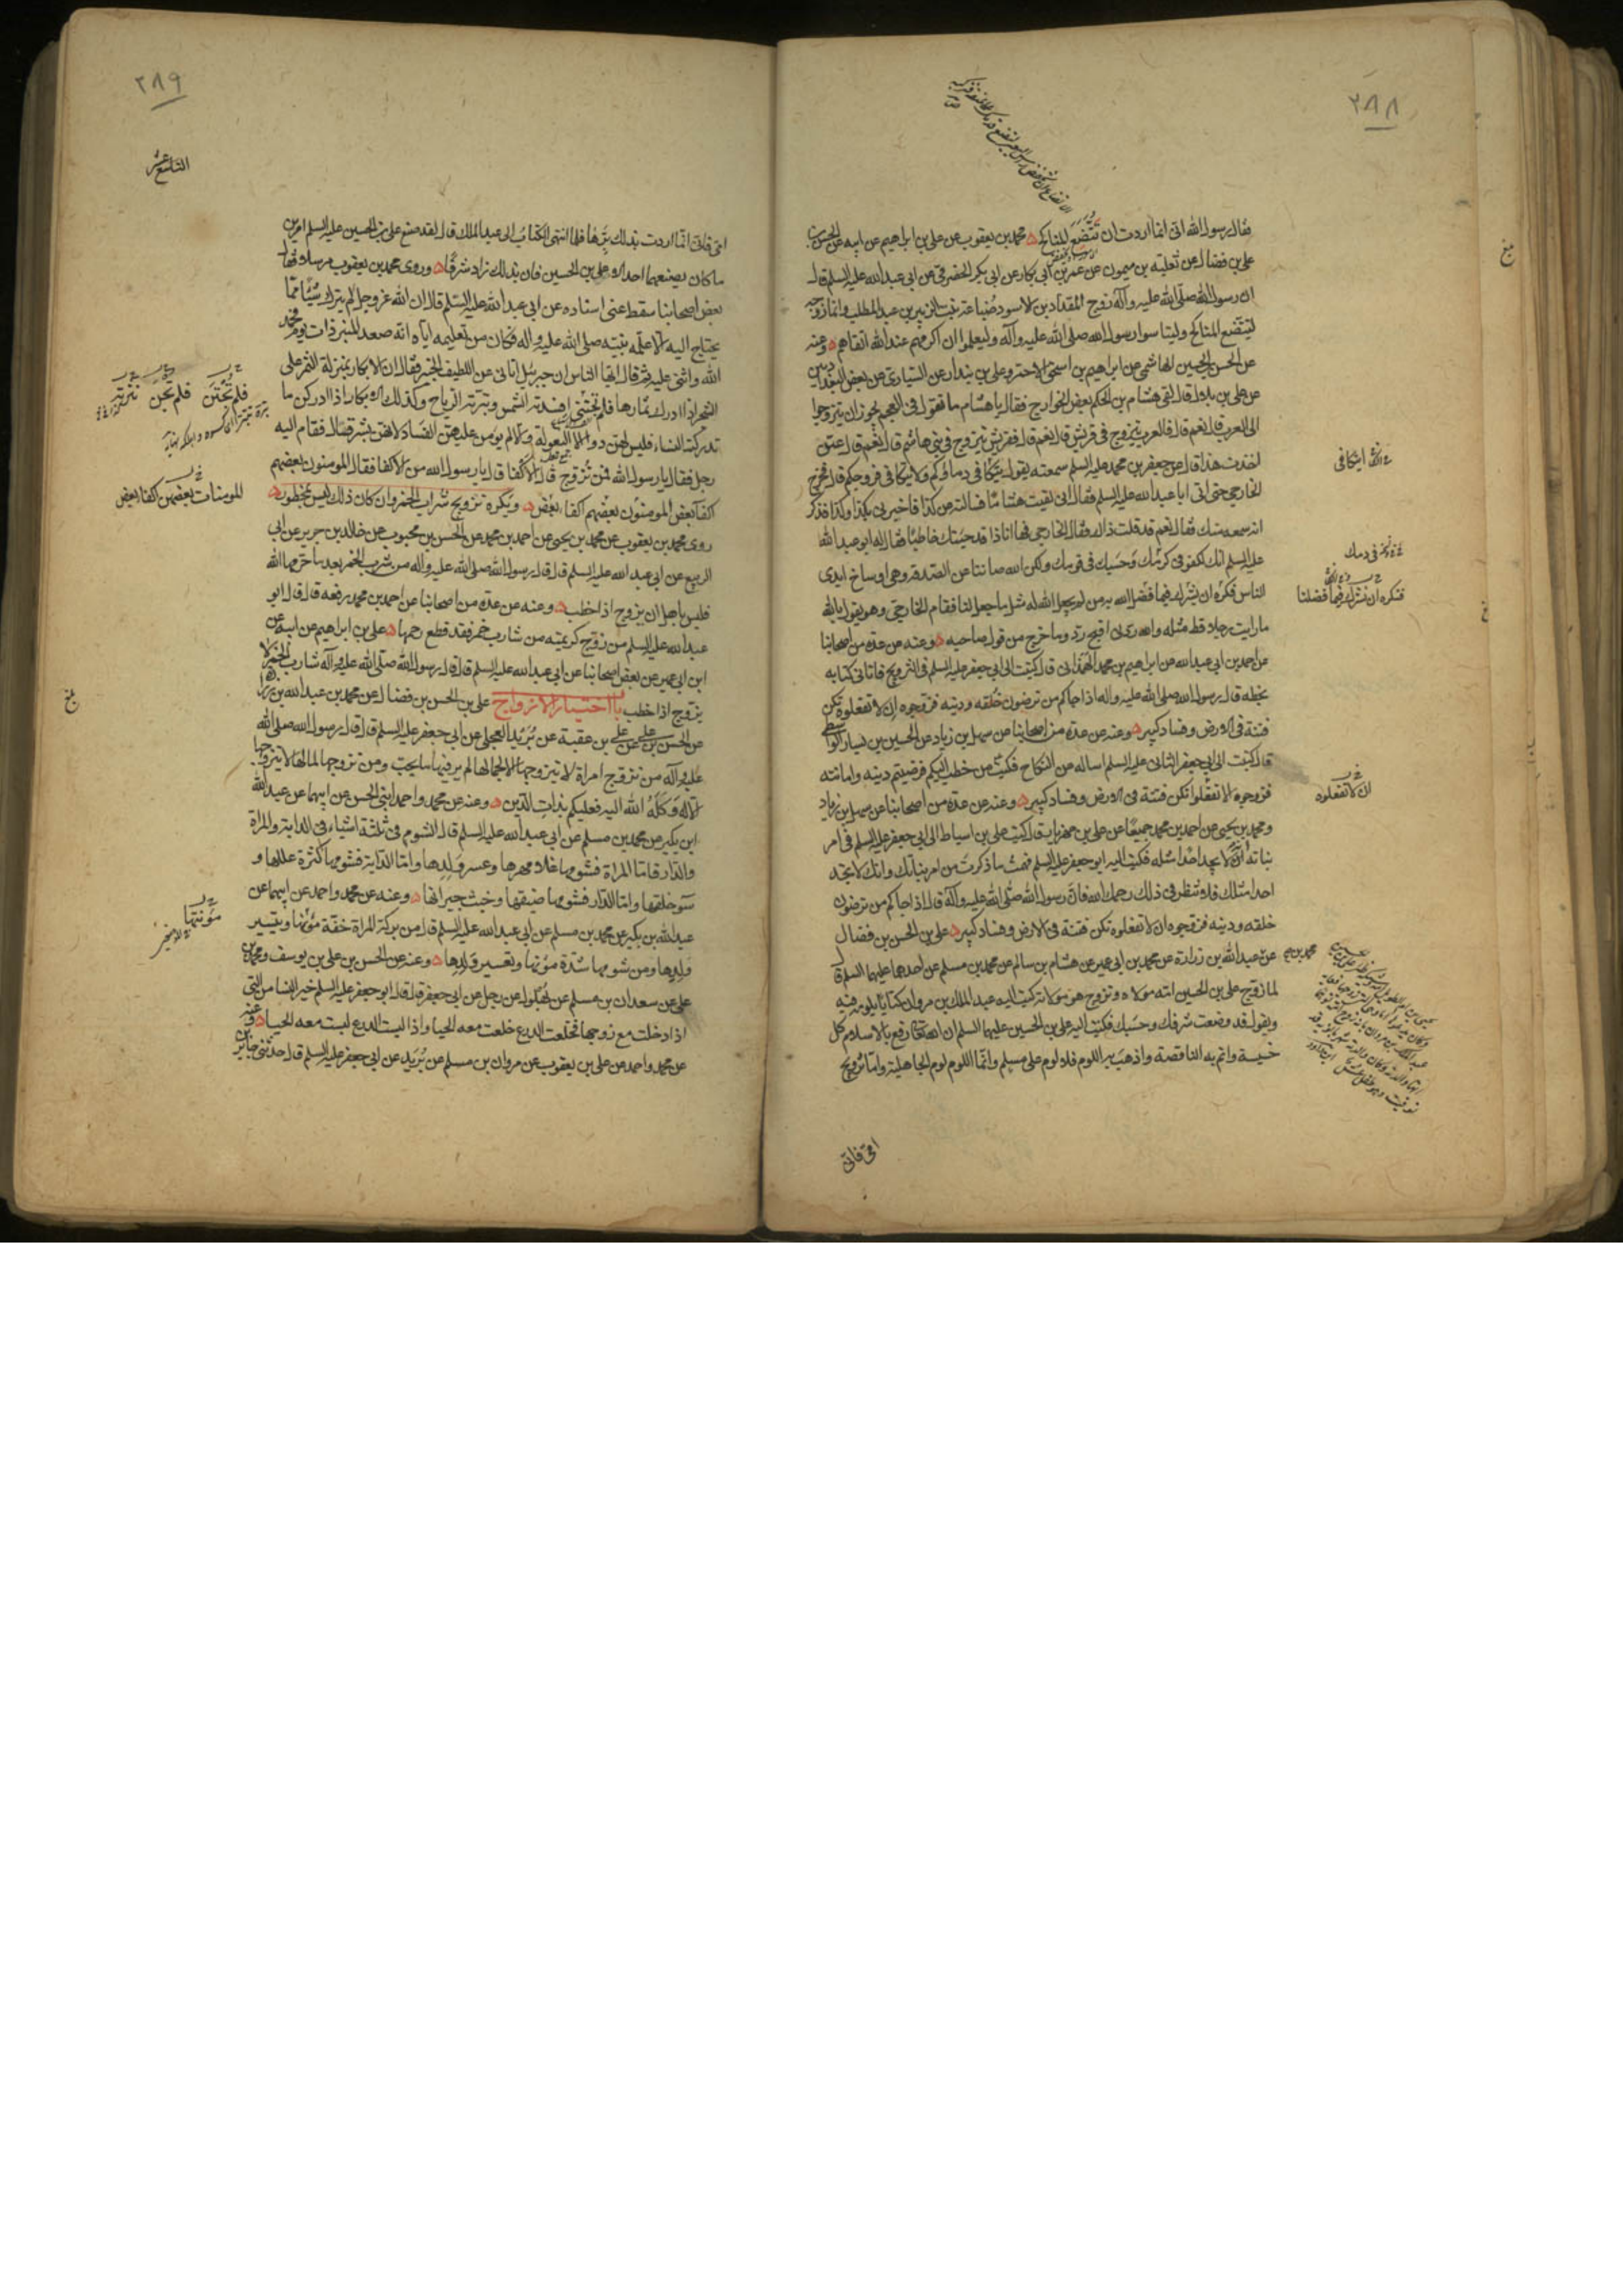 ٢٨٨
فقال رسول الله انى انما اردت ان تتضع المناكح محمد بن يعقوب عن على بن ابراهيم عن ابيه عن الحسن بن
على بن فضال عن ثعلبة بن ميمون عن عمر بن ابى بكار عن ابى بكر الحضرمى عن ابى عبد الله عليه السلم قال
ان رسول الله صلى الله عليه وآله زوج المقداد بن الاسود ضباعة بنت الزبير بن عبد المطلب وانما زوجه
لتتضع المناكح وليتاسوا برسول الله صلى الله عليه وآله وليعلموا ان اكرمهم عند الله اتقاهم وعنه
عن الحسن بن الحسين الهاشمى عن ابراهيم بن اسحق الاحمر وعلى بن بندار عن السيارى عن بعض البغداديين
عن على بن بلال قال لقى هشام بن الحكم بعض الخوارج فقال يا هشام ما تقول فى العجم يجوز ان يتزوجوا
الى العرب قال نعم قال فالعرب يتزوج فى قريش قال نعم قال فقريش يتزوج فى بنى هاشم قال نعم قال عمن
اخذت هذا قال عن جعفر بن محمد عليه السلم سمعته يقول يتكافى دماؤكم ولا يتكافى فروجكم قال فخرج
الخارجى حتى اتى ابا عبد الله عليه السلم فقال انى لقيت هشاما فسالته عن كذا فاخبرنى بكذا وكذا فذكر
انه سمعه منك فقال نعم قد قلت ذلك فقال الخارجى فها انا ذا قد جئتك خاطبا فقال له ابو عبد الله
عليه السلم انك لكفو فى كرمك وحسبك فى قومك ولكن الله صاننا عن الصدقة وهى اوساخ ايدى
الناس فكره ان يشرك فيما فضل الله به من لم يجعل الله له مثل ما جعل لنا فقام الخارجى وهو يقول بالله
ما رايت رجلا قط مثله والله ردنى اقبح رد وما خرج من قول صاحبه وعنه عن عدة من اصحابنا
عن احمد بن ابى عبد الله عن ابراهيم بن محمد الهمدانى قال كتبت الى ابى جعفر عليه السلم فى التزويج فاتانى كتابه
بخطه قال رسول الله صلى الله عليه واله اذا جاكم من ترضون خلقه ودينه فزوجوه ان لا تفعلوه تكن
فتنة فى الارض وفساد كبير وعنه عن عدة من اصحابنا عن سهل بن زياد عن الحسين بن بشار الواسطى
قال كتبت الى ابى جعفر الثانى عليه السلم اساله عن النكاح فكتب من خطب اليكم فرضيتم دينه وامانته
فزوجوه الا تفعلوا تكن فتنة فى الارض وفساد كبير وعنه عن عدة من اصحابنا عن سهل بن زياد
ومحمد بن يحيى عن احمد بن محمد جميعا عن على بن مهزيار قال كتب على بن اسباط الى ابى جعفر عليه السلم فى امر
بناته انه لا يجد احدا مثله فكتب اليه ابو جعفر عليه السلم فهمت ما ذكرت من امر بناتك وانك لا تجد
احدا مثلك فلا تنظر فى ذلك رحمك الله فان رسول الله صلى الله عليه وآله قال اذا جاكم من ترضون
خلقه ودينه فزوجوه ان لا تفعلوه تكن فتنة فى الارض وفساد كبير على بن الحسن بن فضال
عن عبد الله بن زرارة عن محمد بن ابى عمير عن هشام بن سالم عن محمد بن مسلم عن احدهما عليهما السلم قال
لما زوج على بن الحسين امه مولاه وتزوج هو مولاته كتب اليه عبد الملك بن مروان كتابا يلومه فيه
ويقول قد وضعت شرفك وحسبك فكتب اليه على بن الحسين عليهما السلم ان الله تعالى رفع بالاسلام كل
خسيسة واتم به الناقصة واذهب به اللوم فلا لوم على مسلم وانما اللوم لوم الجاهلية واما تزويج
امى فانى
اتتكافى
فى دمك
فنكره ان نشرك فيما فضلنا
ان لا تفعلوه
محمد بن
٢٨٩
التاسع عشر
امى فانى انما اردت بذلك برها فلما انتهى الكتاب الى عبد الملك قال لقد صنع على بن الحسين عليه السلم امرين
ما كان يصنعهما احد الا على بن الحسين فان بذلك زاد شرفا وروى محمد بن يعقوب مرسلا فقال
بعض اصحابنا سقط عنى اسناده عن ابى عبد الله عليه السلم قال ان الله عز وجل لم يترك شيئا مما
يحتاج اليه الا علمه نبيه صلى الله عليه واله فكان من تعليمه اياه انه صعد المنبر ذات يوم فحمد
الله واثنى عليه ثم قال ايها الناس ان جبرئيل اتانى عن اللطيف الخبير فقال ان الابكار بمنزلة الثمر على
الشجر اذا ادرك ثمارها فلم تجتنى افسدته الشمس ونثرته الرياح وكذلك الابكار اذا ادركن ما
تدرك النساء فليس لهن دواء الا البعولة والا لم يومن عليهن الفساد لانهن بشر قال فقام اليه
رجل فقال يا رسول الله فمن نزوج قال الاكفا قال يا رسول الله من الاكفا فقال المومنون بعضهم
اكفاء بعض المومنون بعضهم اكفاء بعض ويكره تزويج شراب الخمر وان كان ذلك ليس بمحظور
روى محمد بن يعقوب عن محمد بن يحيى عن احمد بن محمد عن الحسن بن محبوب عن خالد بن جرير عن ابى
الربيع عن ابى عبد الله عليه السلم قال قال رسول الله صلى الله عليه واله من شرب الخمر بعد ما حرمها الله
فليس باهل ان يزوج اذا خطب وعنه عن عدة من اصحابنا عن احمد بن محمد رفعه قال قال ابو
عبد الله عليه السلم من زوج كريمته من شارب خمر فقد قطع رحمها على بن ابراهيم عن ابيه عن
ابن ابى عمير عن بعض اصحابنا عن ابى عبد الله عليه السلم قال قال رسول الله صلى الله عليه وآله شارب الخمر لا
يزوج اذا خطب باب اختيار الازواج على بن الحسن بن فضال عن محمد بن عبد الله بن زرارة
عن الحسن بن على عن على بن عقبة عن بريد العجلى عن ابى جعفر عليه السلم قال قال رسول الله صلى الله
عليه وآله من تزوج امراة لا يتزوجها الا لجمالها لم ير فيها ما يحب ومن تزوجها لمالها لا يتزوجها
الا له وكله الله اليه فعليكم بذات الدين وعنه عن محمد واحمد ابنى الحسن عن ابيهما عن عبد الله
ابن بكير عن محمد بن مسلم عن ابى عبد الله عليه السلم قال الشوم فى ثلثة اشياء فى الدابة والمراة
والدار فاما المراة فشومها غلاء مهرها وعسر ولدها واما الدابة فشومها كثرة عللها و
سوء خلقها واما الدار فشومها ضيقها وخبث جيرانها وعنه عن محمد واحمد عن ابيهما عن
عبد الله بن بكير عن محمد بن مسلم عن ابى عبد الله عليه السلم قال من بركة المراة خفة مؤنتها وتيسير
ولدها ومن شومها شدة مؤنتها وتعسير ولدها وعنه عن الحسن بن على بن يوسف ومحمد بن
على عن سعدان بن مسلم عن بهلول عن رجل عن ابى جعفر قال قال ابو جعفر عليه السلم خير النسا من التى
اذا دخلت مع زوجها فخلعت الدرع خلعت معه الحيا واذا لبست الدرع لبست معه الحيا وعنه
عن محمد واحمد عن على بن يعقوب عن مروان بن مسلم عن بريد عن ابى جعفر عليه السلم قال حدثنى جابر بن
فلم تجتن
المومنات بعضهن اكفا بعض
مؤنتها